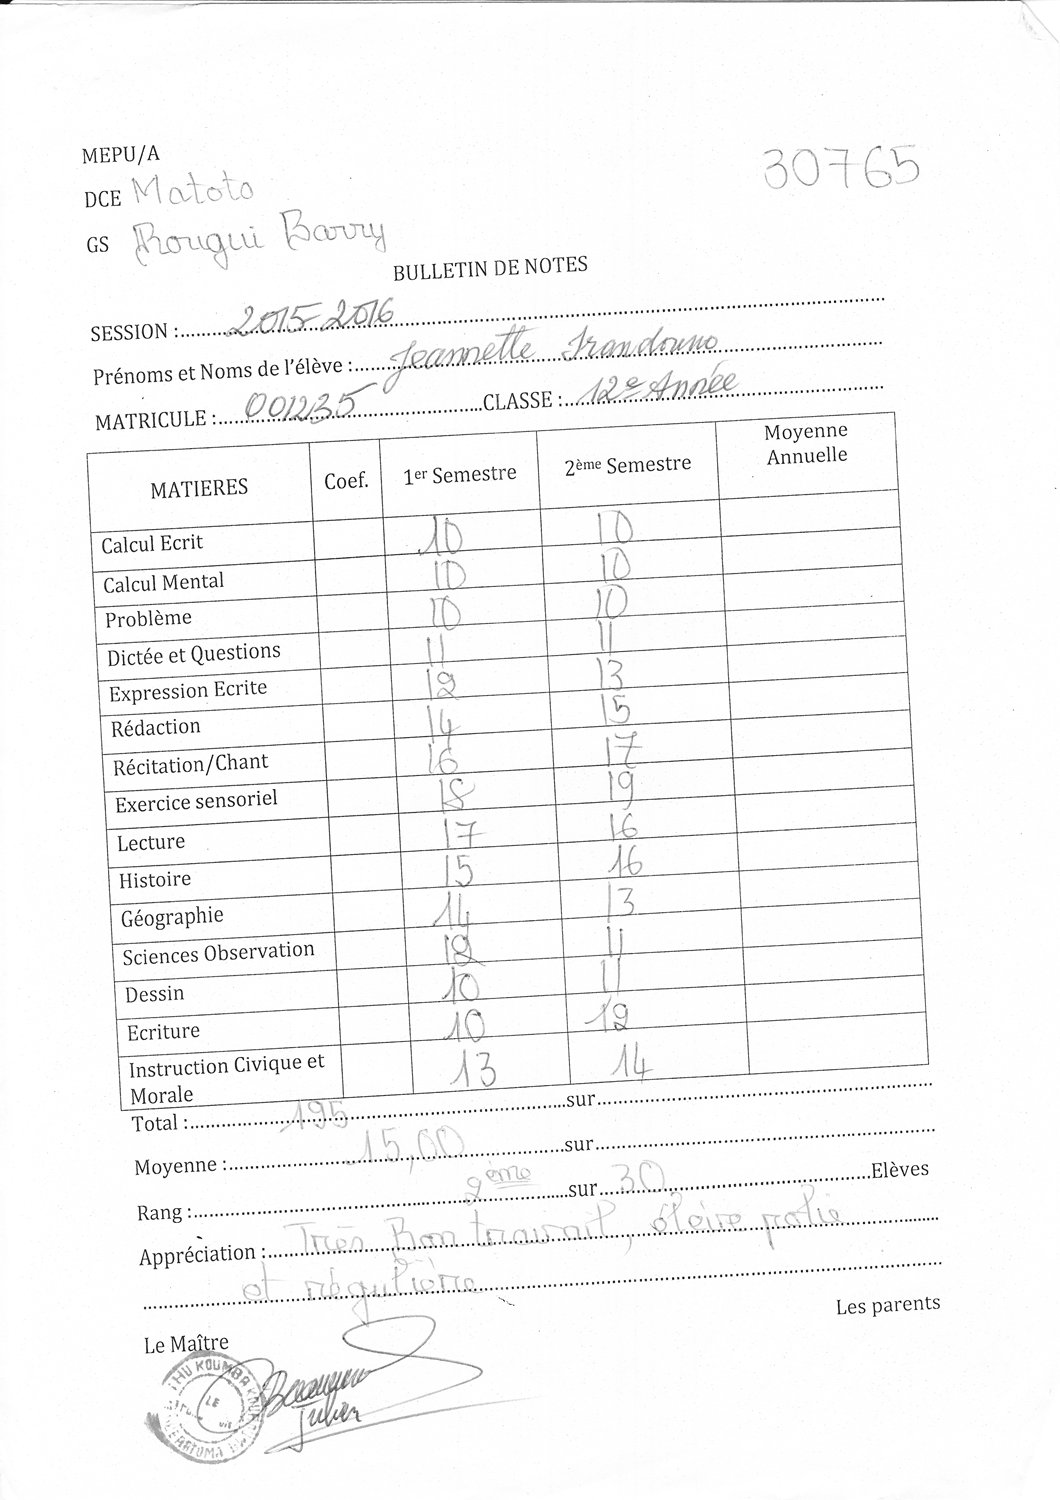 MEPU/A
30765
DCE Matoto
GS Rougui Barry
BULLETIN DE NOTES
SESSION : 2015-2016
Prénoms et Noms de l'élève : Jeannette Irandouno
MATRICULE : 001235 CLASSE : 12e Année
MATIERES Coef. 1er Semestre 2ème Semestre Moyenne Annuelle
Calcul Ecrit 10 10
Calcul Mental 10 10
Problème 10 10
Dictée et Questions 11 11
Expression Ecrite 12 13
Rédaction 14 15
Récitation/Chant 16 17
Exercice sensoriel 18 19
Lecture 17 16
Histoire 15 16
Géographie 14 13
Sciences Observation 12 11
Dessin 10 11
Ecriture 10 12
Instruction Civique et Morale 13 14
Total : 195 sur
Moyenne : 15,00 sur
Rang : 2ème sur 30 Elèves
Appréciation : Très Bon travail, élève polie
et régulière
Les parents
Le Maître
KOUMBA